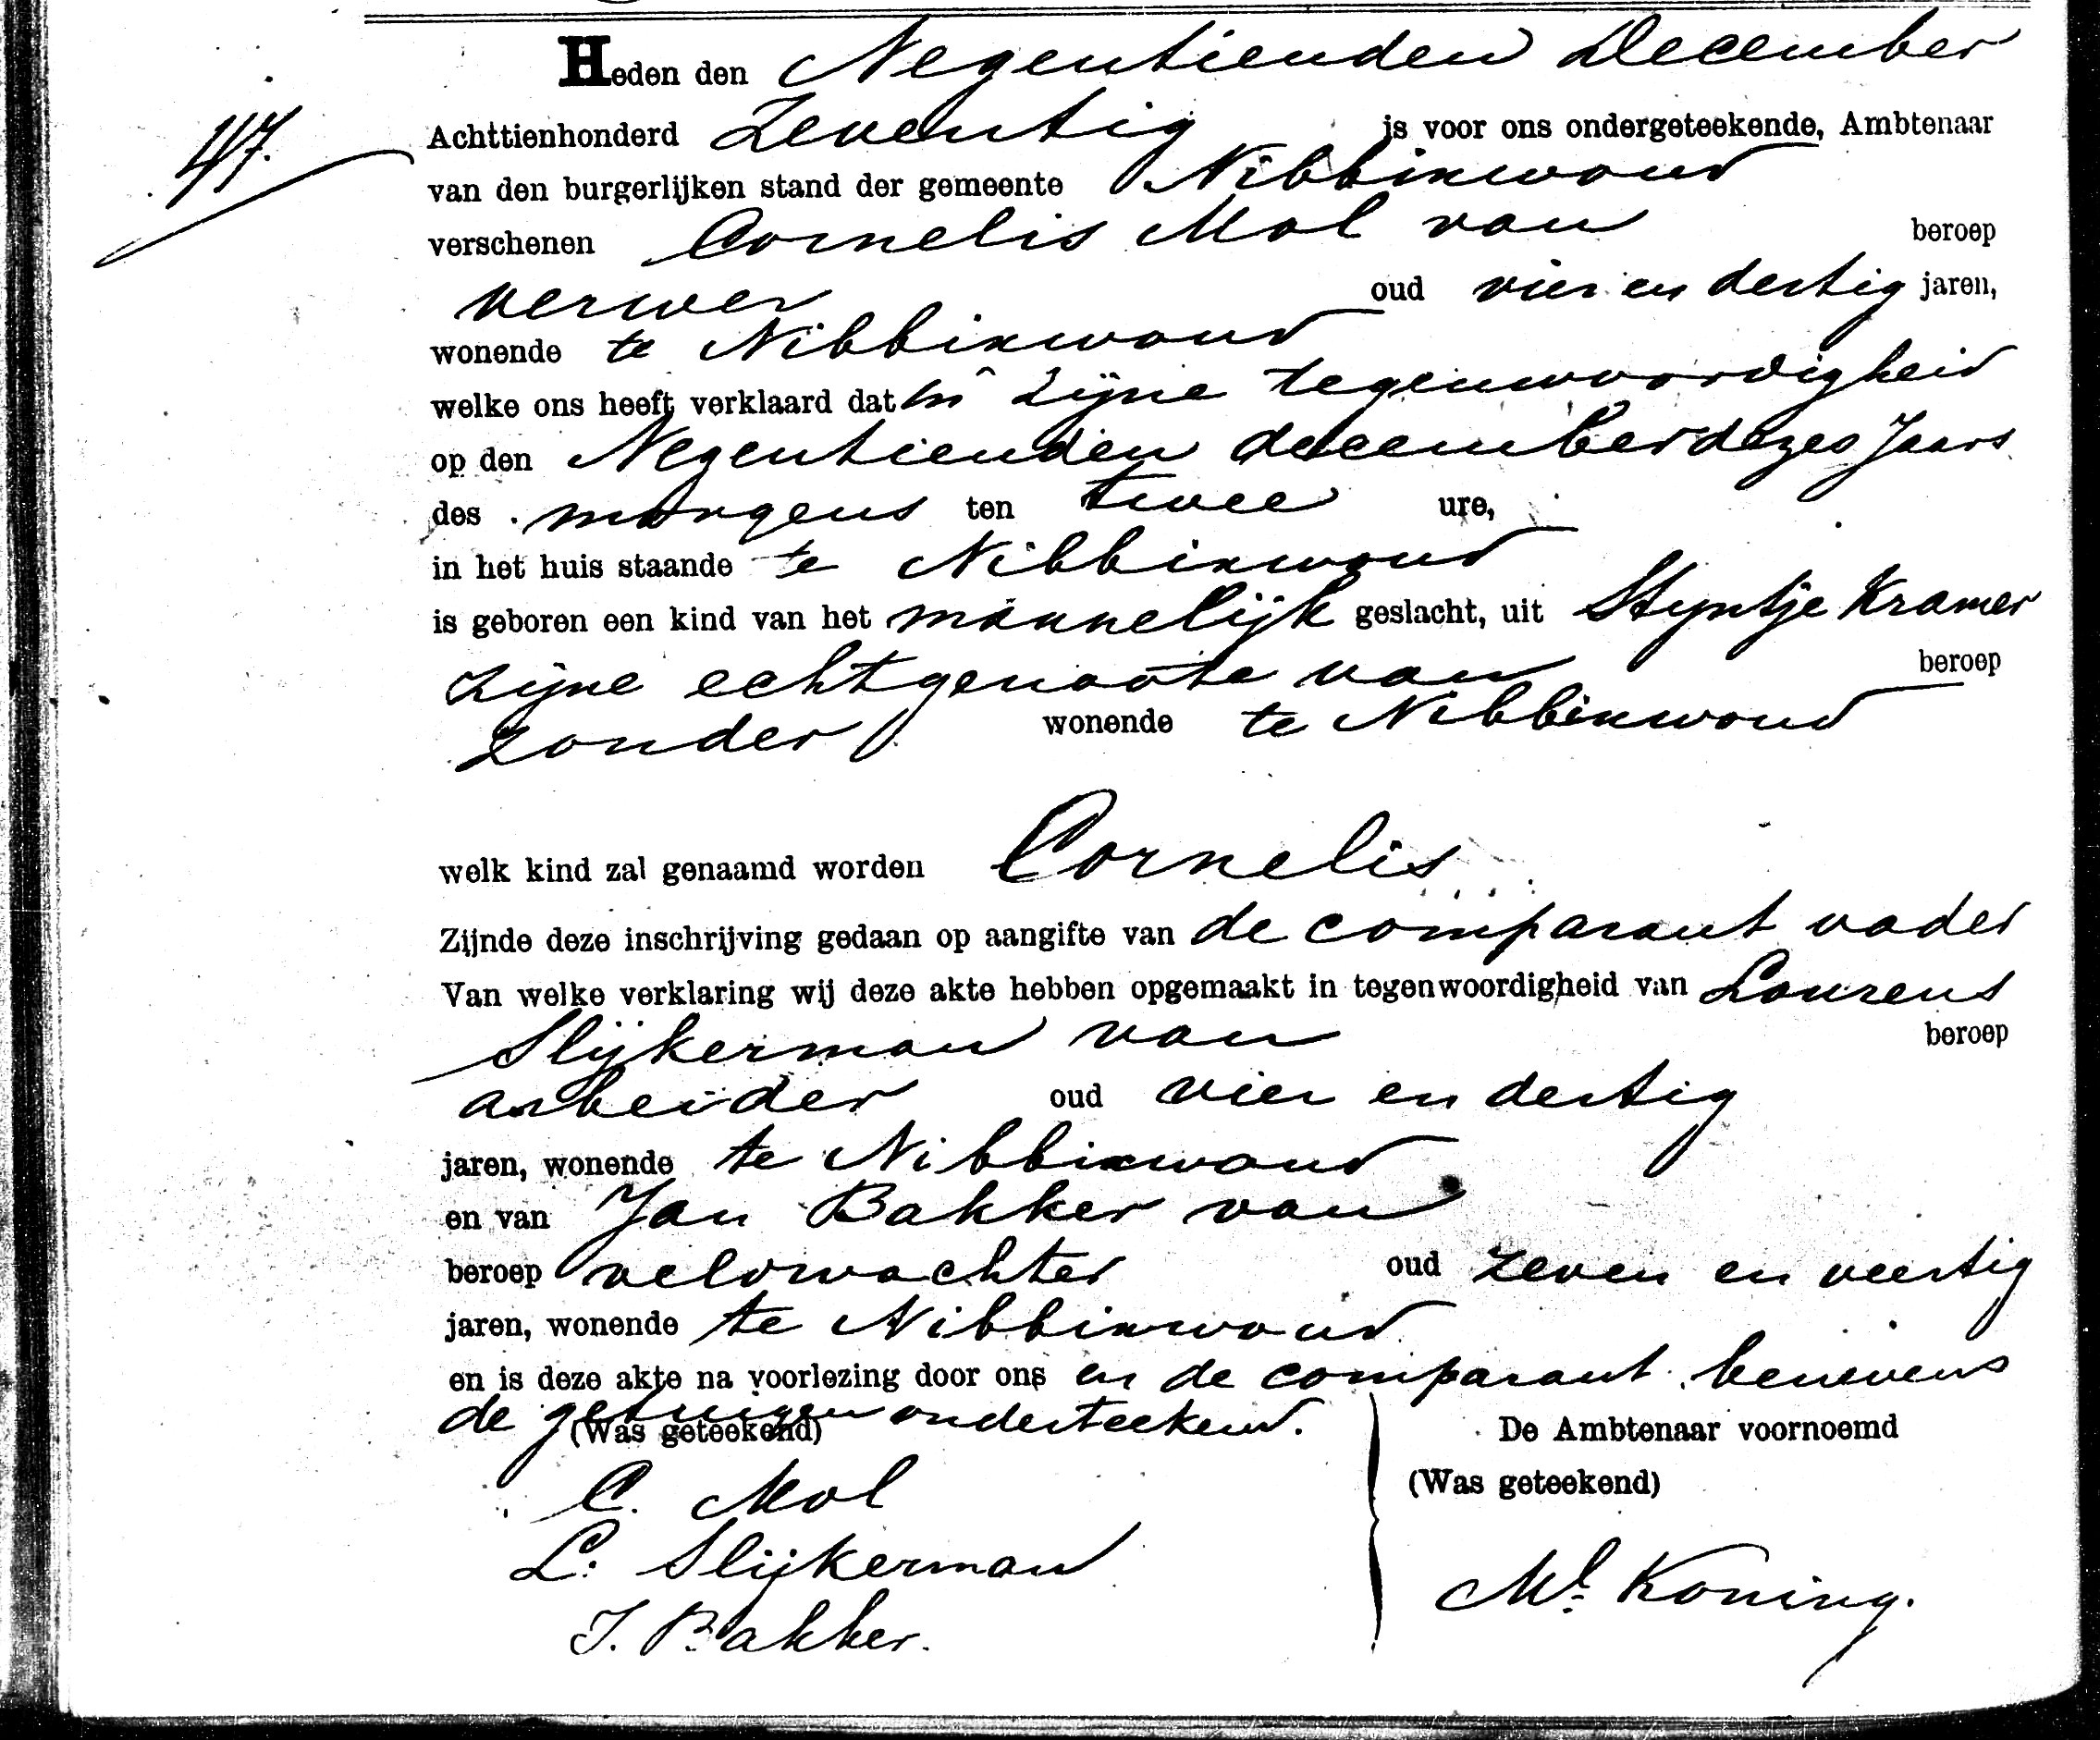 Heden den Negentienden December
47.
Achttienhonderd Zeventig is voor ons ondergeteekende, Ambtenaar
van den burgerlijken stand der gemeente Nibbixwoud
verschenen Cornelis Mol van beroep
verwer oud vier en dertig jaren,
wonende te Nibbixwoud
welke ons heeft verklaard dat in zijne tegenwoordigheid
op den Negentienden december dezes Jaars
des morgens ten twee ure,
in het huis staande te Nibbixwoud
is geboren een kind van het mannelijk geslacht, uit Stijntje Kramer
zijne echtgenoote van beroep
zonder wonende te Nibbixwoud
welk kind zal genaamd worden Cornelis
Zijnde deze inschrijving gedaan op aangifte van de comparant vader
Van welke verklaring wij deze akte hebben opgemaakt in tegenwoordigheid van Lourens
Slijkerman van beroep
arbeider oud vier en dertig
jaren, wonende te Nibbixwoud
en van Jan Bakker van
beroep veldwachter oud zeven en veertig
jaren, wonende te Nibbixwoud
en is deze akte na voorlezing door ons en de comparant benevens
de getuigen onderteekend.
(Was geteekend)
C. Mol
L. Slijkerman
J. Bakker.
De Ambtenaar voornoemd
(Was geteekend)
Mt. Koning.